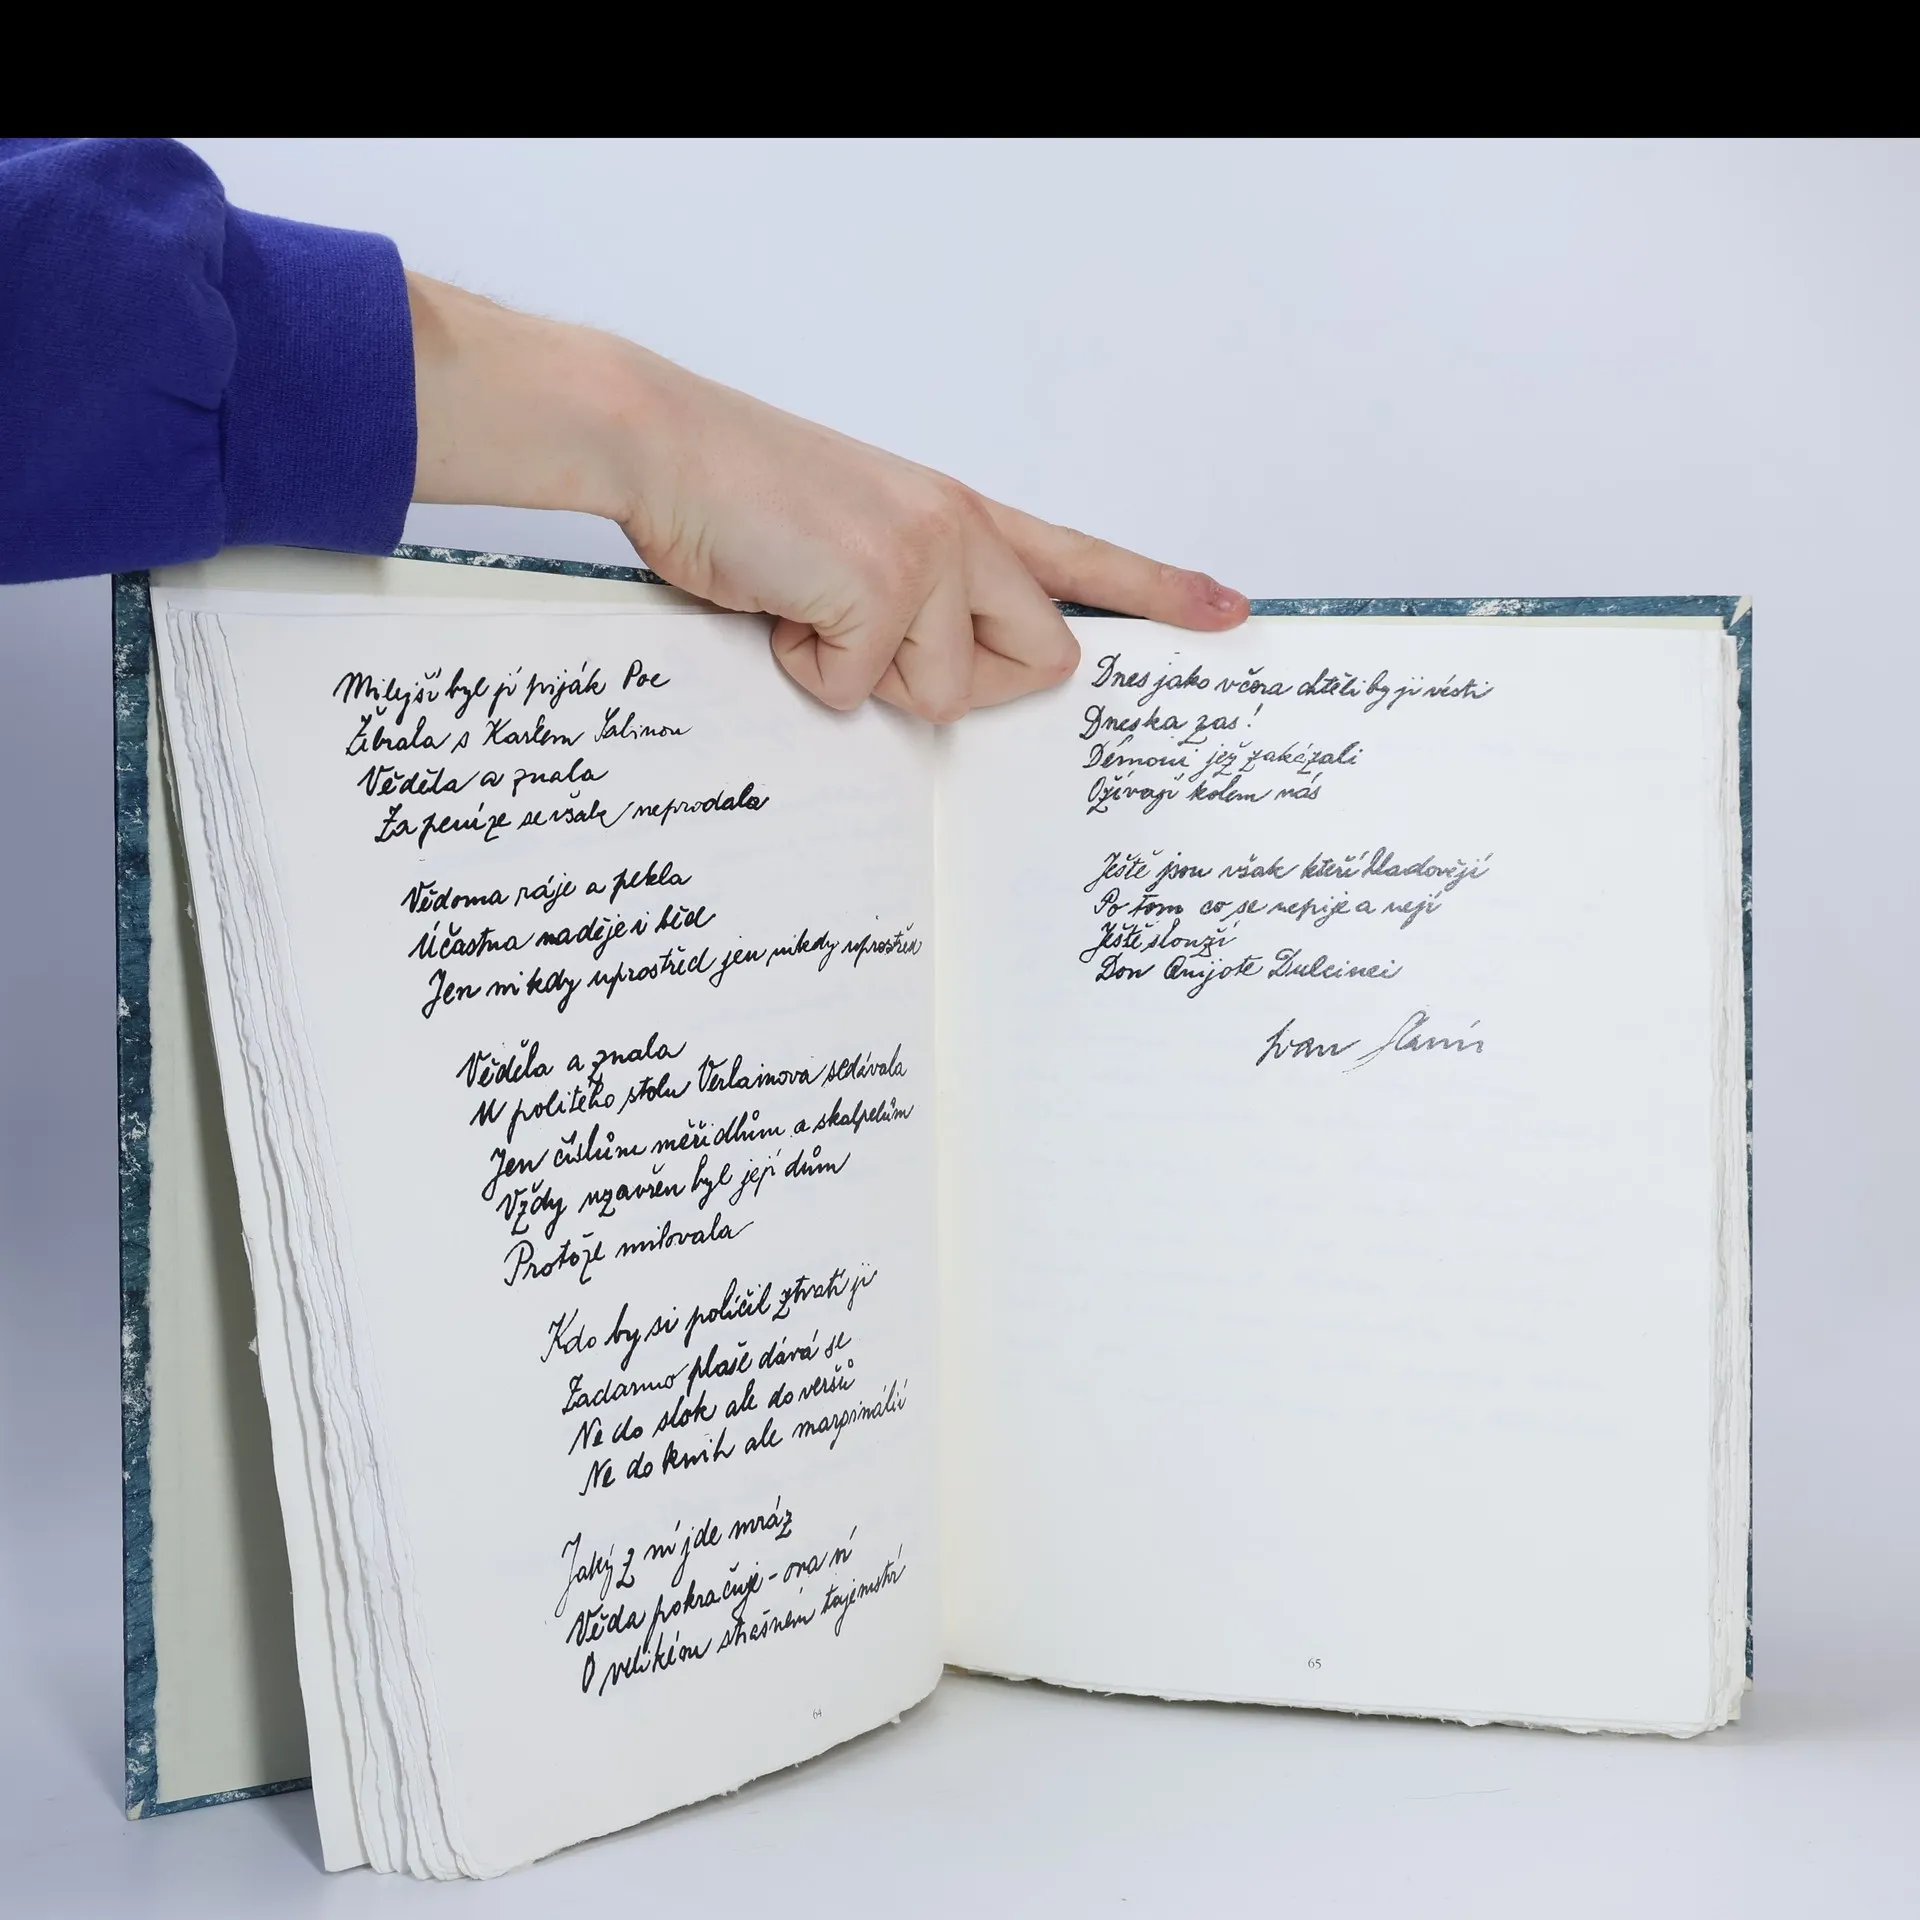 Milejší byl jí piják Poe
Žebrala s Karlem Sabinou
Věděla a znala
Za peníze se však neprodala
Vědoma ráje a pekla
Účastna naděje i běd
Jen nikdy uprostřed jen nikdy uprostřed
Věděla a znala
U politého stolu Verlainova sedávala
Jen číslům měřidlům a skalpelům
Vždy uzavřen byl její dům
Protože milovala
Kdo by si políčil ztratí ji
Zadarmo plaše dává se
Ne do slok ale do veršů
Ne do knih ale marginálií
Jaký z ní jde mráz
Věda pokračuje - ona ní
O velikém strašném tajemství
64
Dnes jako včera chtěli by ji vésti
Dneska zas!
Démoni jež zakázali
Ožívají kolem nás
Ještě jsou však kteří hladovějí
Po tom co se nepije a nejí
Ještě slouží
Don Quijote Dulcinei
Ivan Slavík
65